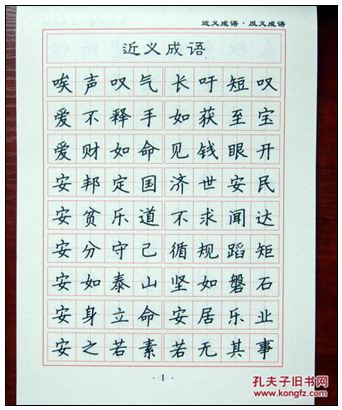 近义成语·反义成语
近义成语
唉声叹气 长吁短叹
爱不释手 如获至宝
爱财如命 见钱眼开
安邦定国 济世安民
安贫乐道 不求闻达
安分守己 循规蹈矩
安如泰山 坚如磐石
安身立命 安居乐业
安之若素 若无其事
·1·
孔夫子旧书网